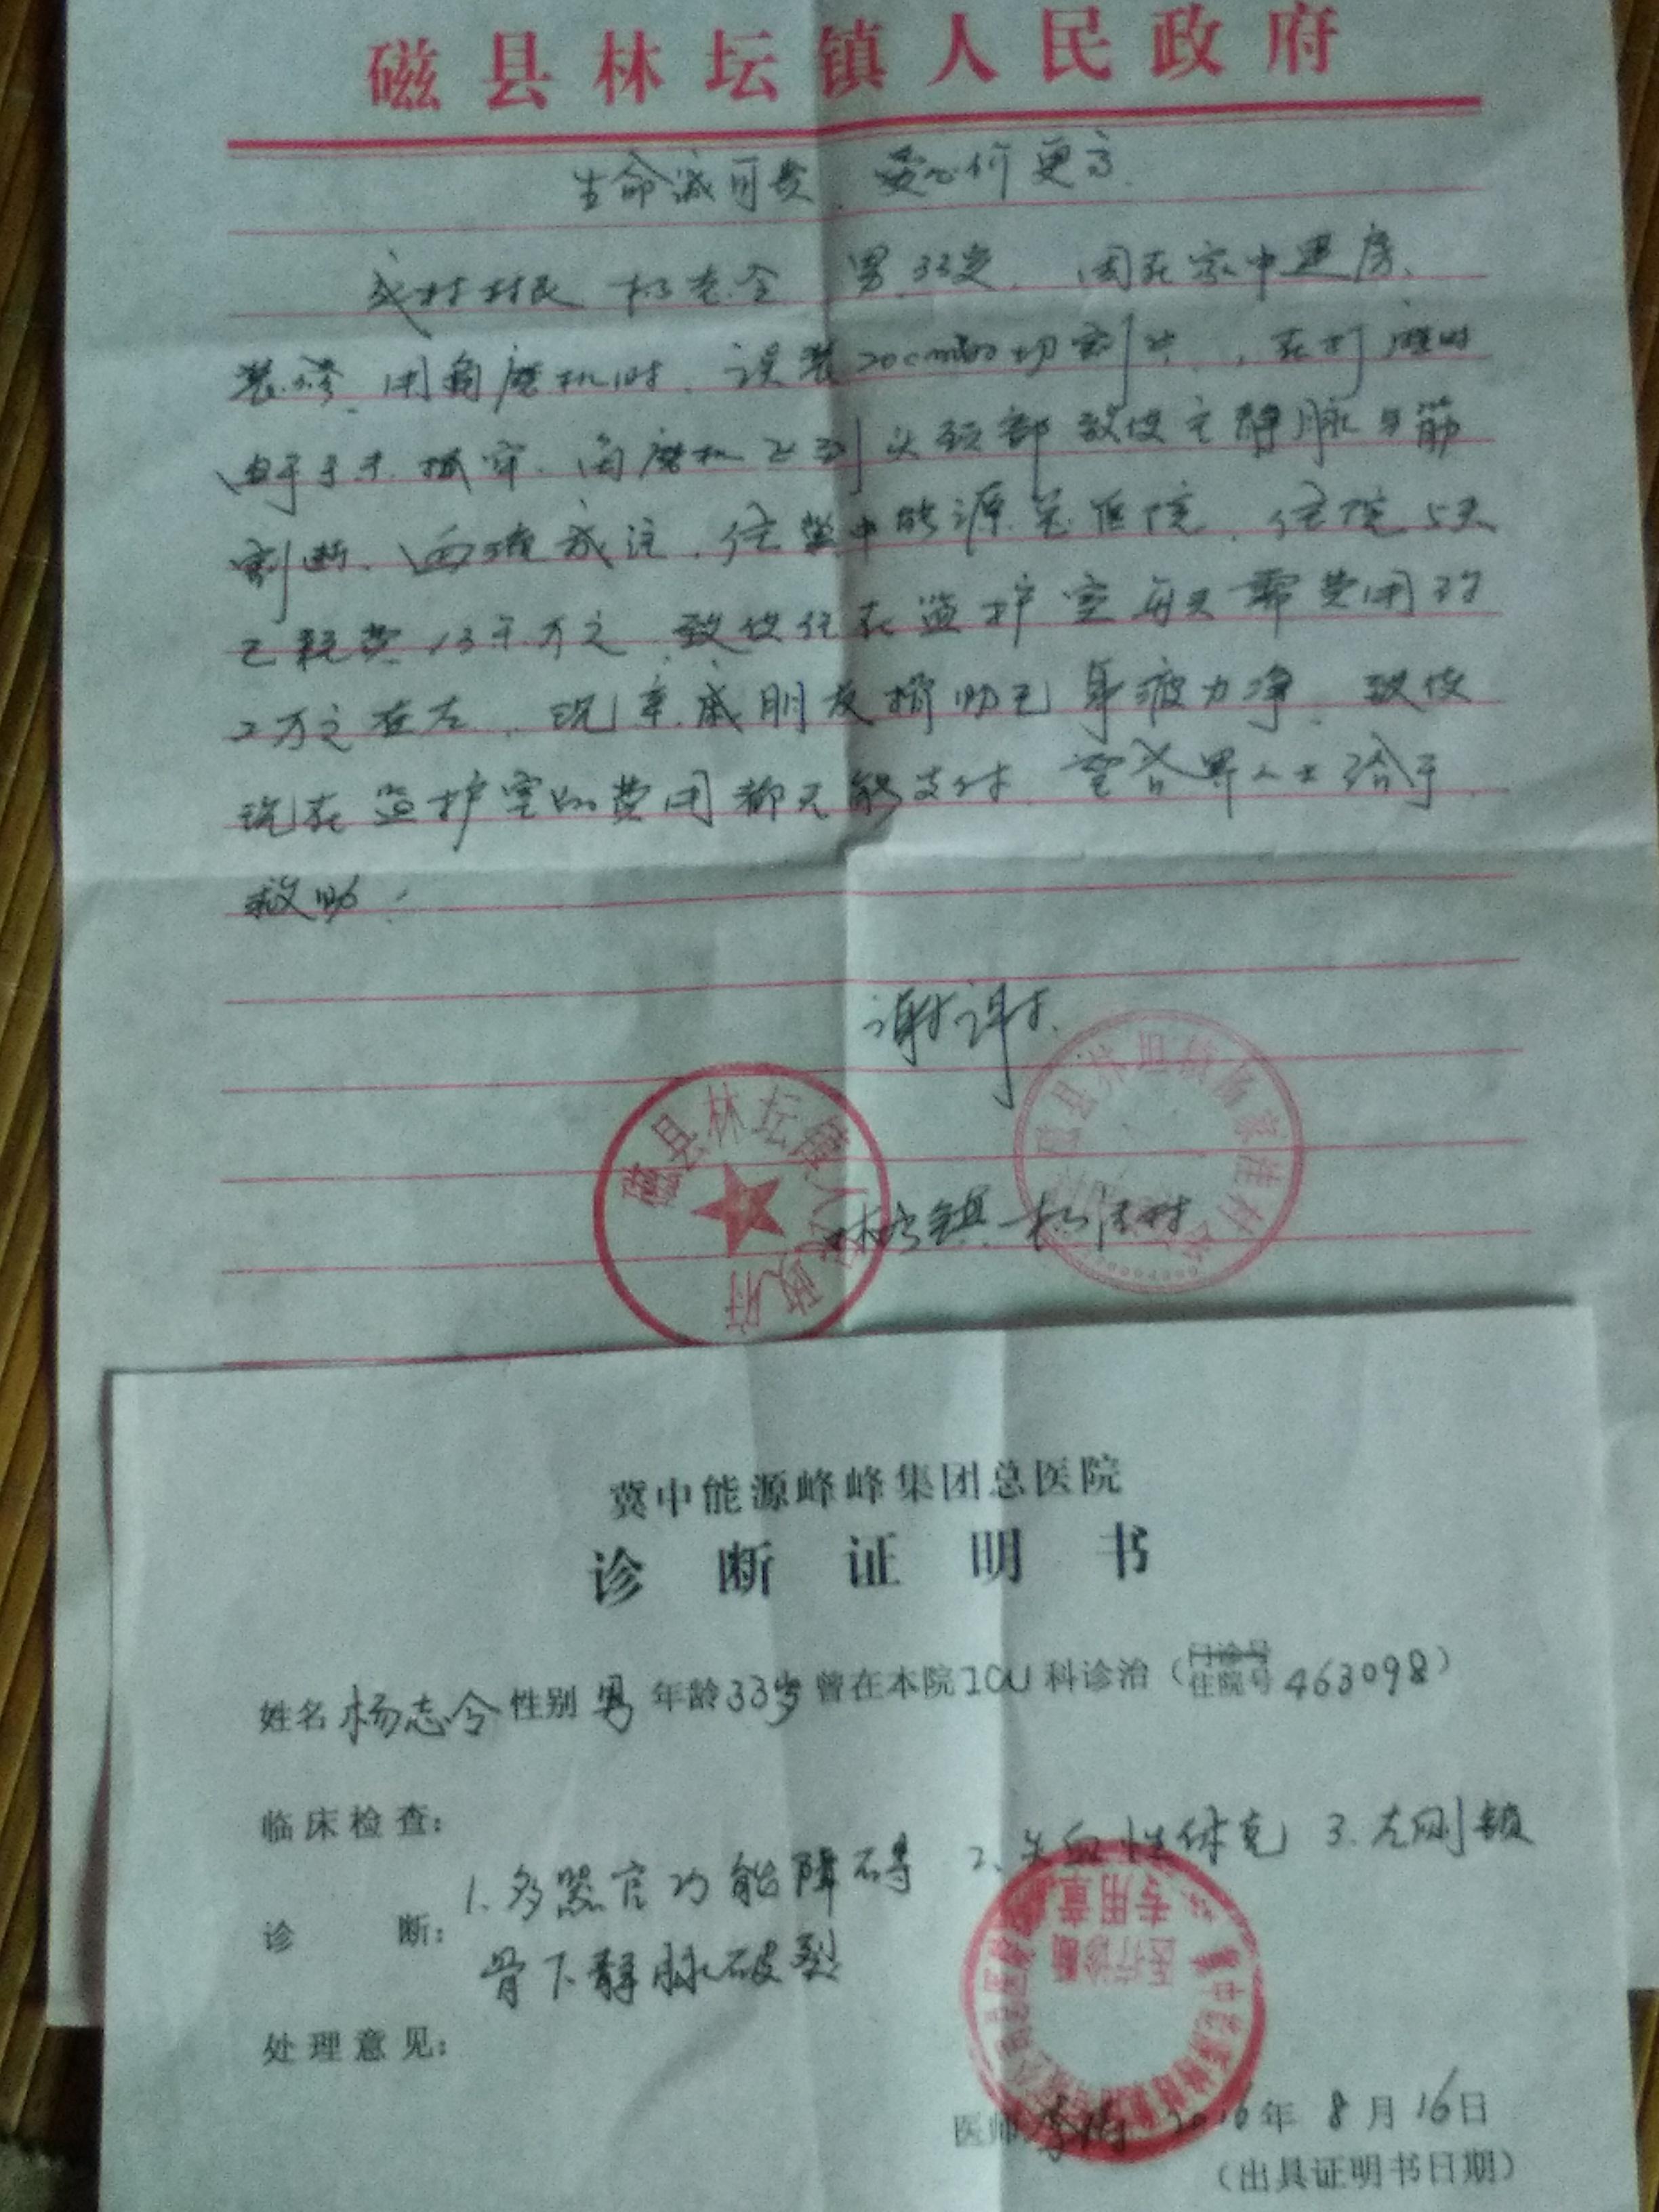 磁县林坛镇人民政府
生命诚可贵，爱心价更高
我村村民 杨志令 男 33岁， 因在家中建房、
装修、用角磨机时，误装20cm的切割片，在打磨时
由于手未抓牢，角磨机飞到头颈部致使主静脉与筋
割断，血流成注，住冀中能源总医院，住院5天
已耗费13千万元，致使住在监护室每天需费用约
2万元左右，现亲戚朋友捐助已身疲力净，致使
现在监护室的费用都不能支付，望各界人士给予
救助！
谢谢
磁县林坛镇人民政府
林坛镇 杨 村
冀中能源峰峰集团总医院
诊断证明书
姓名 杨志令 性别 男 年龄 33岁 曾在本院 ICU 科诊治（门诊号 住院号 463098）
临床检查：
诊断： 1. 多器官功能障碍 2. 失血性休克 3. 左侧锁
骨下静脉破裂
医疗诊断
专用章
处理意见：
医师 2016年 8月16日
（出具证明书日期）